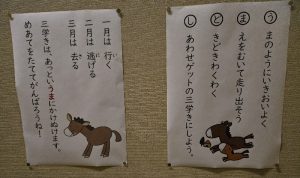 一月は 行く
二月は 逃げる
三月は 去る
三学きは、あっというまにかけぬけます。
めあてをたててがんばろうね!
うまのようにいきおいよく
まえをむいて走り出そう
どきどきわくわく
しあわせゲットの三学きにしよう。